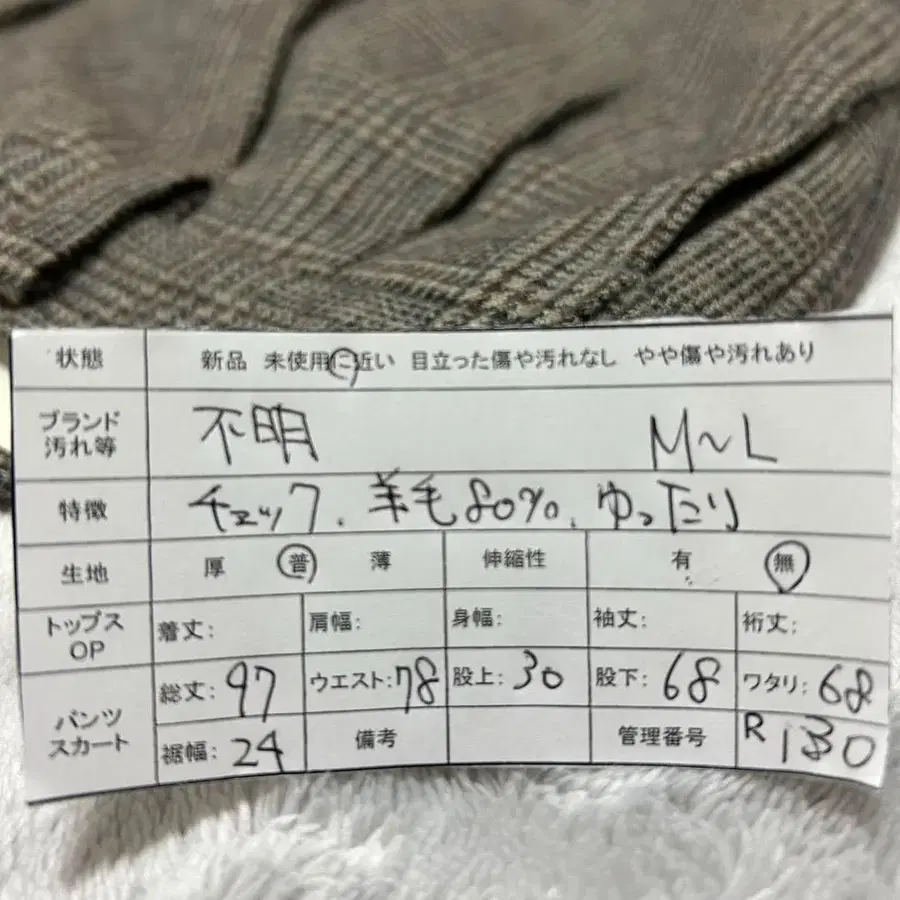 状態 新品 未使用に近い 目立った傷や汚れなし やや傷や汚れあり
ブランド 不明 M〜L
汚れ等
特徴 チェック、羊毛80%、ゆったり
生地 厚 普 薄 伸縮性 有 無
トップス 着丈: 肩幅: 身幅: 袖丈: 裄丈:
OP
パンツ 総丈: 97 ウエスト: 78 股上: 30 股下: 68 ワタリ: 68
スカート 裾幅: 24 備考 管理番号 R 130